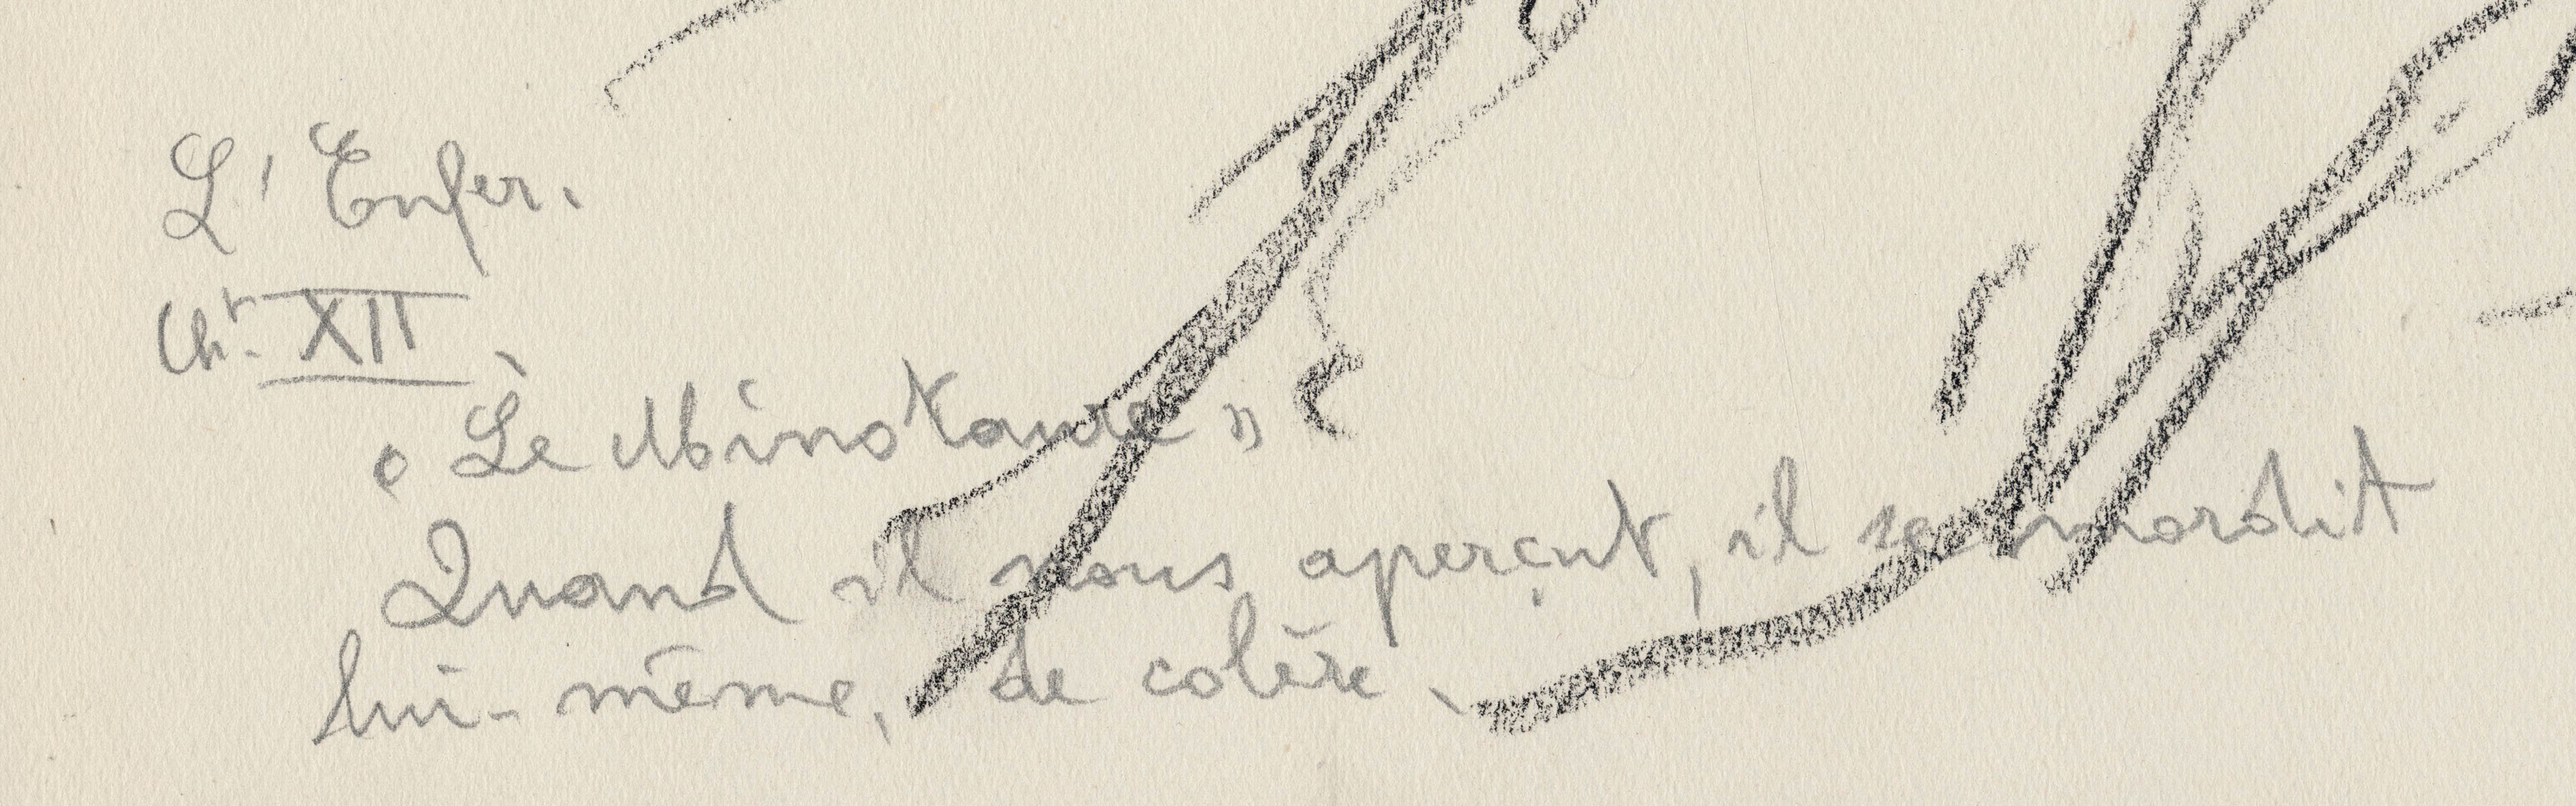 L'Enfer.
Chr. XII
« Le Minotaure »
Quand il nous aperçut, il se mordit
lui-même, de colère.